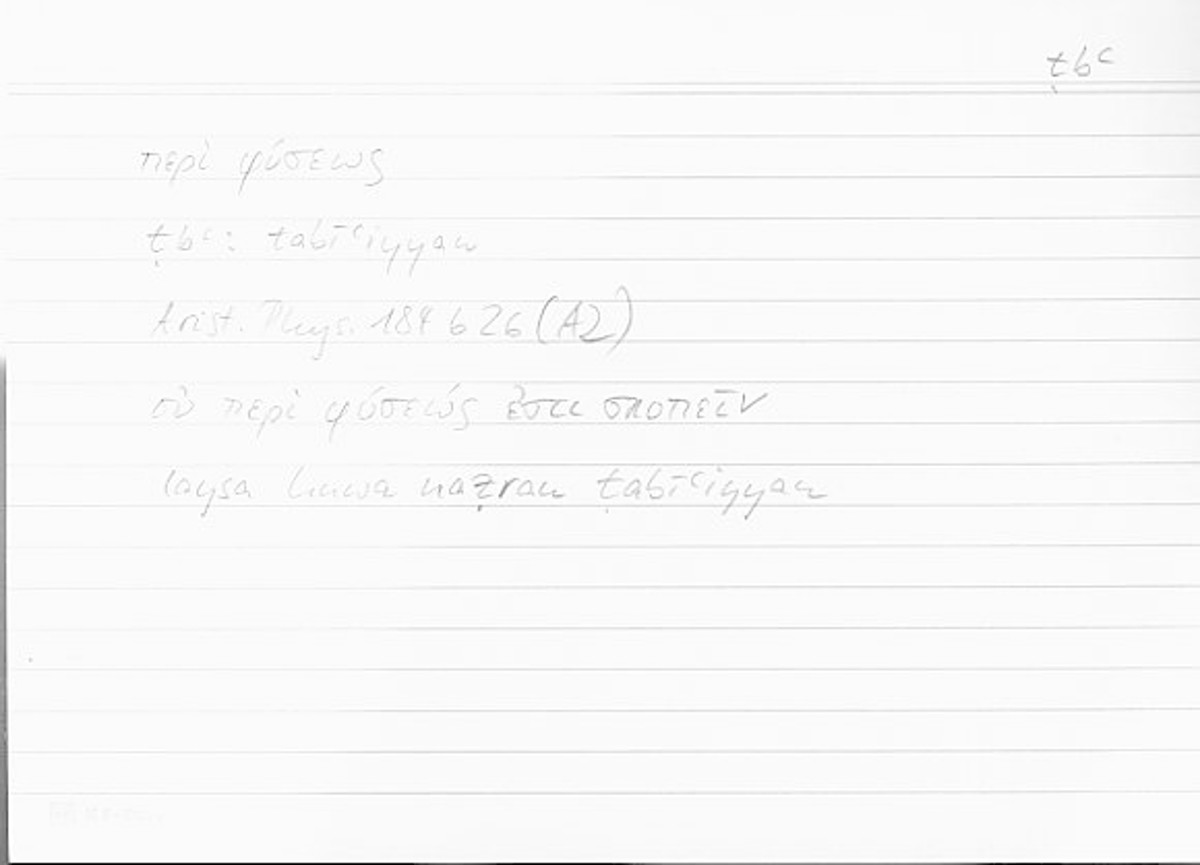 ṭbᶜ
περὶ φύσεως
ṭbᶜ: tabīᶜiyyan
Arist. Phys. 184 b 26 (A2)
οὐ περὶ φύσεώς ἐστι σκοπεῖν
laysa huwa naẓran ṭabīᶜiyyan